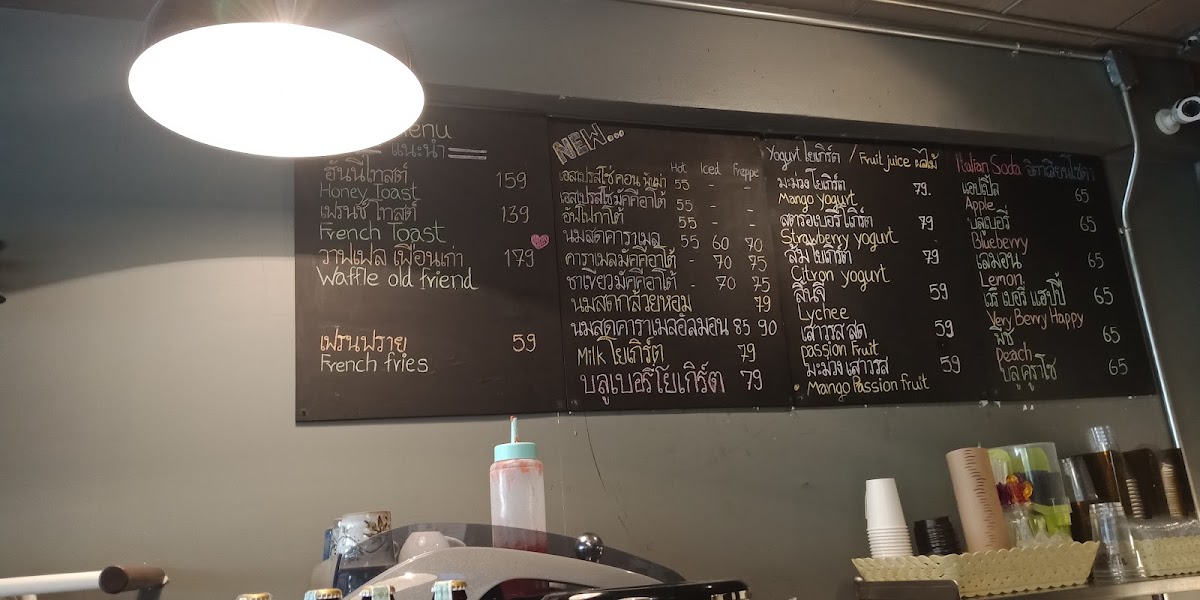 Menu
แนะนำ
ฮันนี่โทสต์ 159
Honey Toast
เฟรนช์โทสต์ 139
French Toast
วาฟเฟิล เพื่อนเก่า 179
Waffle old friend
เฟรนฟราย 59
French fries
NEW...
Hot Iced Frappe
เอสเปรสโซ่ คอน พาน่า 55 - -
เอสเปรสโซ่มัคคีอาโต้ 55 - -
อัฟโฟกาโต้ 55 - -
นมสดคาราเมล 55 60 70
คาราเมลมัคคีอาโต้ - 70 75
ชาเขียวมัคคีอาโต้ - 70 75
นมสดกล้วยหอม 79
นมสดคาราเมลอัลมอน 85 90
Milk โยเกิร์ต 79
บลูเบอรี่โยเกิร์ต 79
Yogurt โยเกิร์ต / Fruit juice ผลไม้
มะม่วงโยเกิร์ต 79.
Mango yogurt
สตรอเบอรี่โยเกิร์ต 79
Strawberry yogurt
ส้มโยเกิร์ต 79
Citron yogurt
ลิ้นจี่ 59
Lychee
เสาวรสสด 59
passion Fruit
มะม่วงเสาวรส 59
Mango Passion fruit
Italian Soda อิตาเลียนโซดา
แอปเปิ้ล 65
Apple
บลูเบอรี่ 65
Blueberry
เลมอน 65
Lemon
เวรี่ เบอรี่ แฮปปี้ 65
Very Berry Happy
พีช 65
Peach
บลูคูราโซ 65